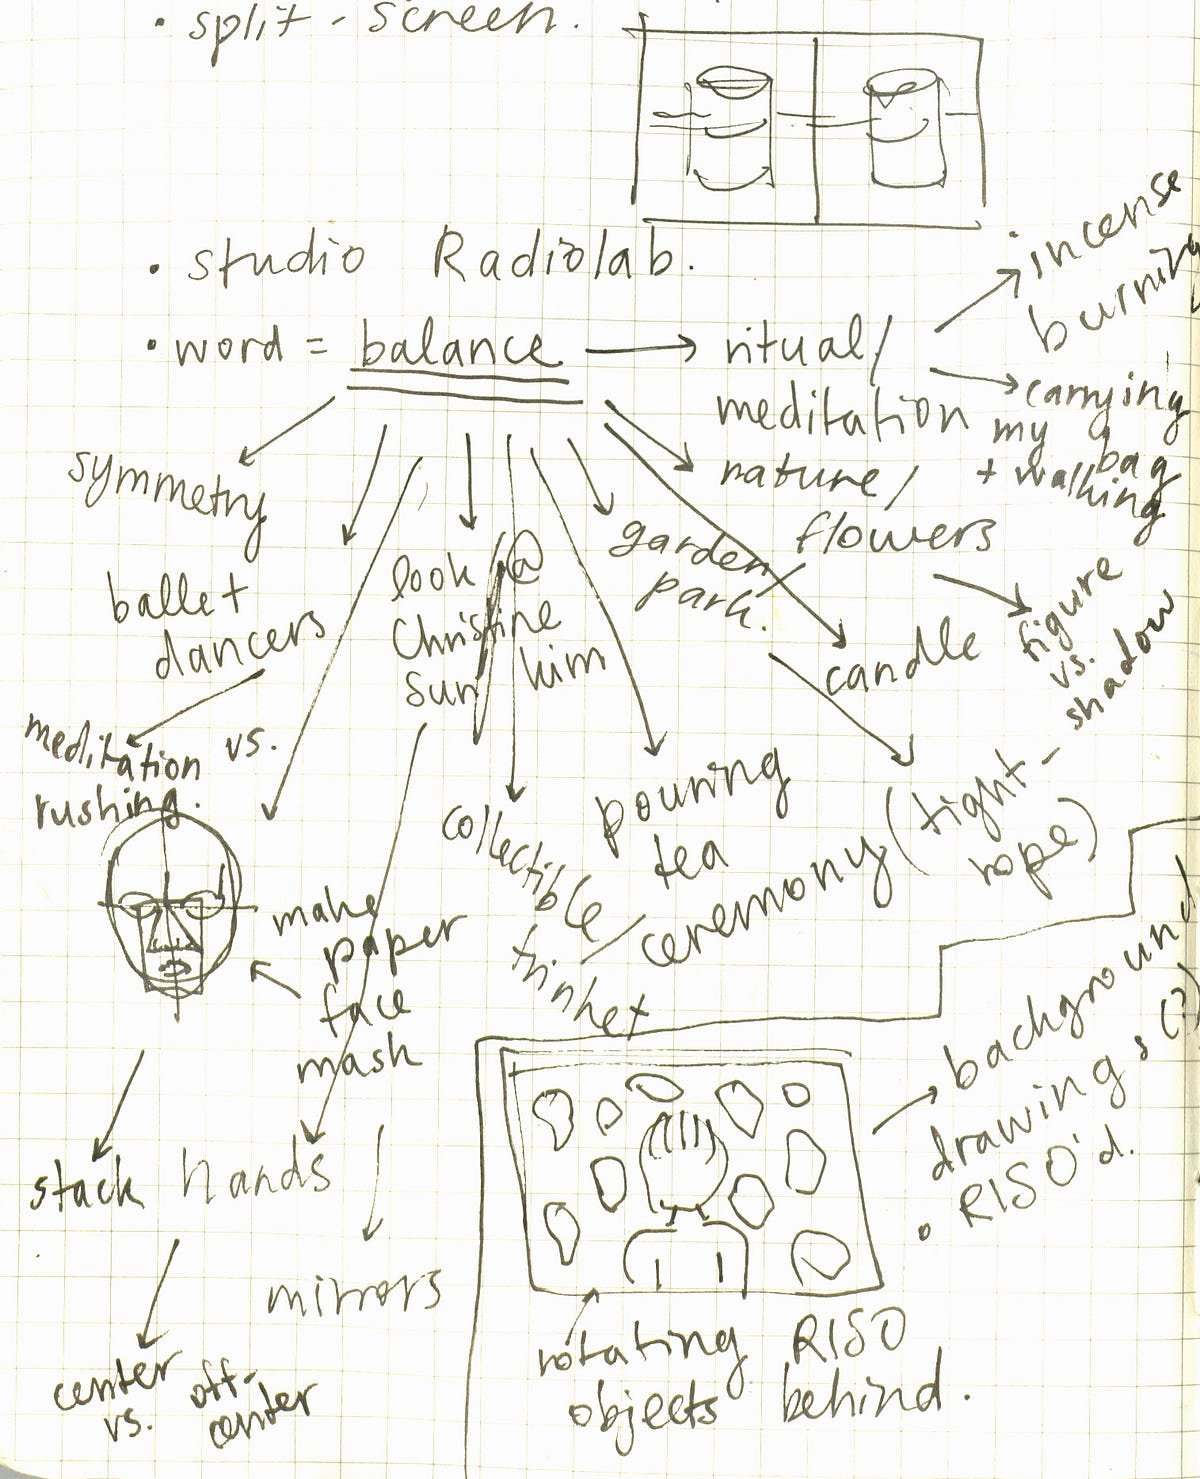 • split - screen.
• studio Radiolab.
• word = balance
ritual/
meditation
incense
burning
carrying
my bag
+ walking
nature/
flowers
figure
vs.
shadow
garden/
park.
candle
symmetry
ballet
dancers
look @
Christine
Sun Kim
meditation vs.
rushing.
collectible/
trinket
pouring
tea
ceremony
(tight-
rope)
make
paper
face
mask
stack
hands
mirrors
center
vs. off-
center
background
drawings (?)
• RISO'd.
rotating RISO
objects behind.